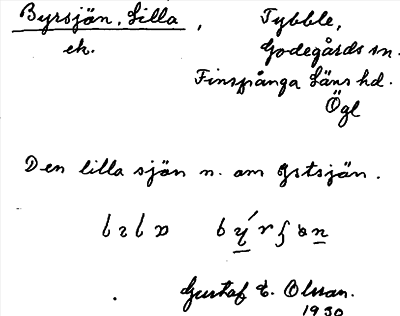 Byrsjön, Lilla, Tybble,
ek. Godegårds sn.
Finspånga Läns hd.
Ögl
Den lilla sjön n. om Ostsjön.
Gustaf E. Olsson.
1930